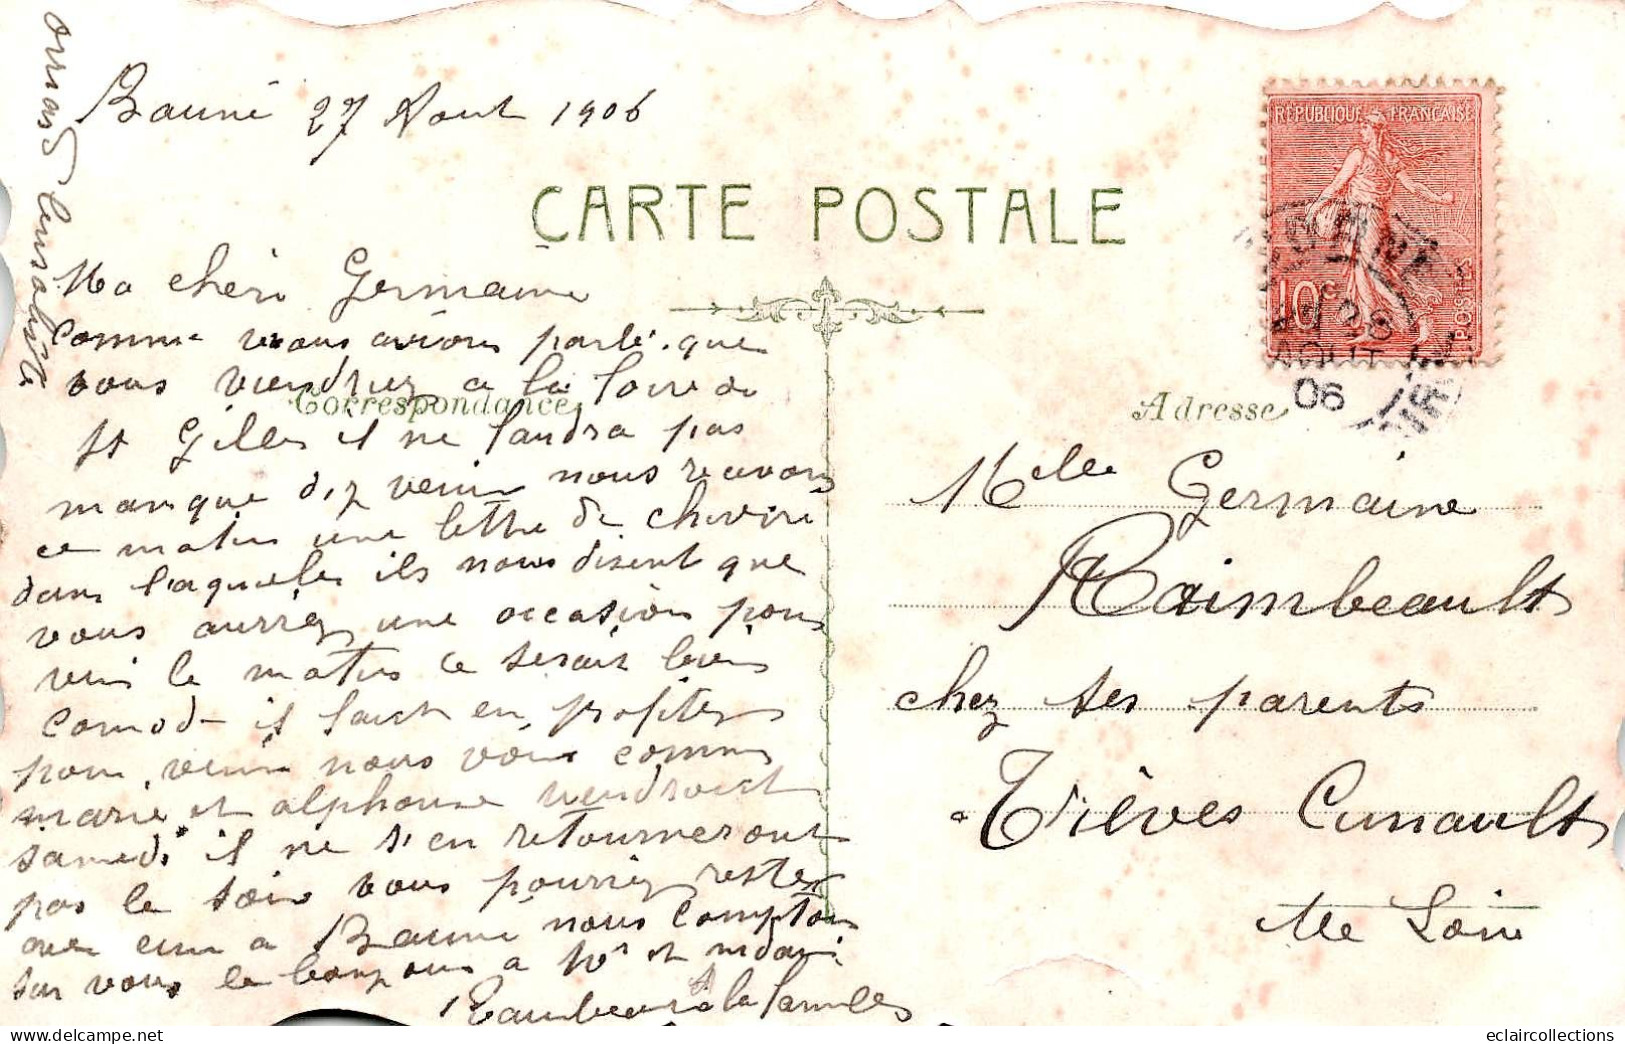 Bauné 27 Aout 1906
CARTE POSTALE
REPUBLIQUE FRANÇAISE
10
POSTES
AOUT
06
Correspondance
Adresse
Ma chèri Germaine
comme vous avions parlé que
vous viendriez a la foire de
St Gilles il ne faudra pas
manque d,y venir nous recevons
ce matin une lettre de
dans laqueles ils nous disent que
vous aurréz une occasion pour
venir le matin ce serait bien
comod il faut en profiter
pour venir nous vous comme
marie et alphonse viendront
samedi il ne s'en retourneront
pas le soir vous pourriez rester
avec eux a Bauné nous compton
sur vous le bonjour a Mr et mdam
Raimbeau la famille
Mlle Germaine
Raimbeault
chez ses parents
a Trèves Cunault
Me Loire
eclaircollections